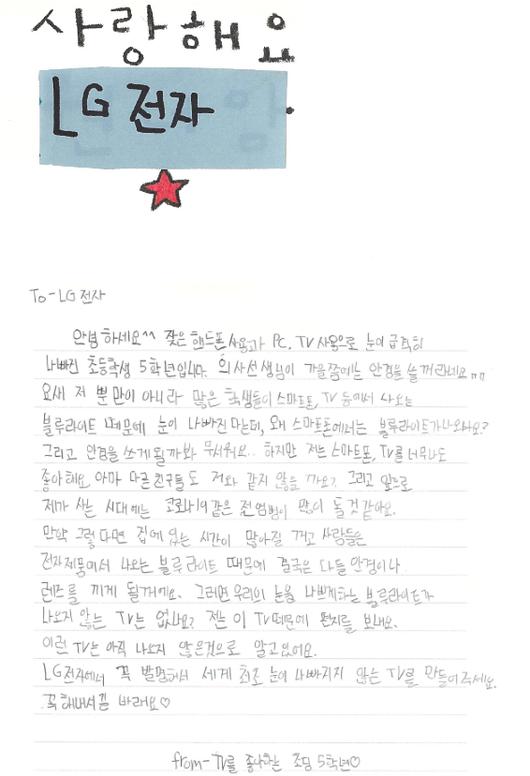 사랑해요
LG 전자
To - LG 전자
안녕하세요^^ 잦은 핸드폰 사용과 PC, TV 사용으로 눈이 급격히
나빠진 초등학생 5학년입니다. 의사선생님이 가을쯤에는 안경을 쓸꺼라네요ㅠㅠ
요새 저 뿐만이 아니라 많은 학생들이 스마트폰, TV 등에서 나오는
블루라이트 때문에 눈이 나빠진다는데, 왜 스마트폰에서는 블루라이트가 나오나요?
그리고 안경을 쓰게 될까봐 무서워요.. 하지만 저는 스마트폰, TV를 너무나도
좋아해요. 아마 다른 친구들도 저와 같지 않을까요? 그리고 앞으로
제가 사는 시대에는 코로나19같은 전염병이 많이 돌 것 같아요.
만약 그렇다면 집에 있는 시간이 많아질 꺼고 사람들은
전자제품에서 나오는 블루라이트 때문에 결국은 다들 안경이나
렌즈를 끼게 될거에요. 그러면 우리의 눈을 나쁘게하는 블루라이트가
나오지 않는 TV는 없나요? 저는 이 TV때문에 편지를 보내요.
이런 TV는 아직 나오지 않은것으로 알고있어요.
LG전자에서 꼭 발명해서 세계 최초 눈이 나빠지지 않는 TV를 만들어주세요.
꼭 해내시길 바래요♡
from - TV를 좋아하는 초딩 5학년♡